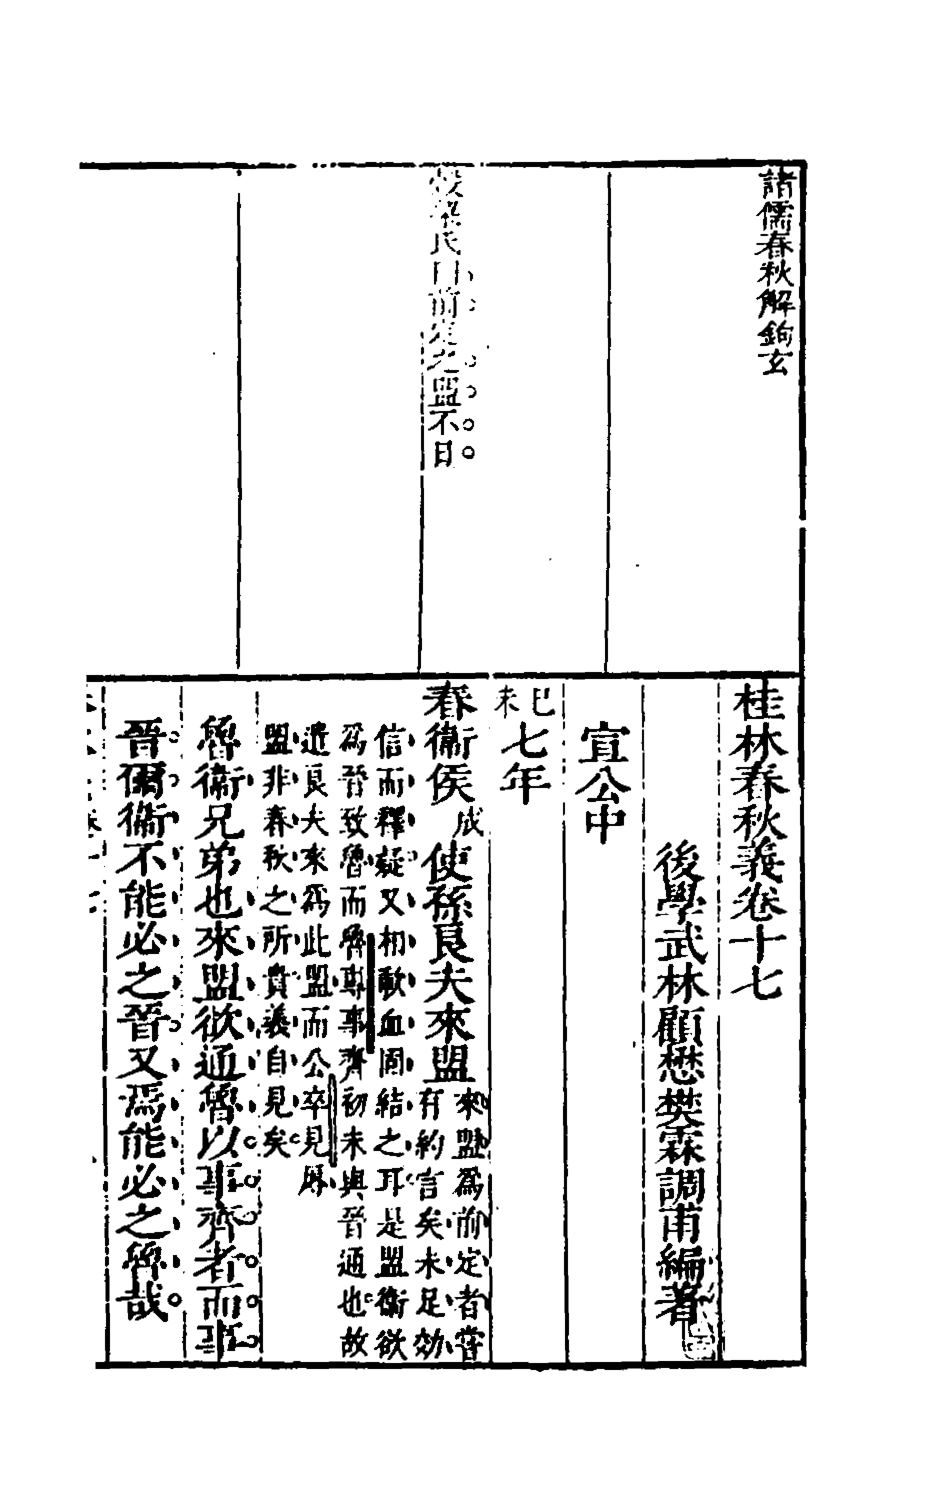 諸儒春秋解鉤玄
穀梁氏曰前定之盟不日
桂林春秋義卷十七
後學武林顧懋樊霖調甫編著
宣公中
巳未七年
春衛侯成使孫良夫來盟
來盟爲前定者嘗
有約言矣未足効
信而釋疑又相歃血固結之耳是盟衛欲
爲晉致魯而魯專事齊初未與晉通也故
遣良夫來爲此盟而公卒見辱
盟非春秋之所貴義自見矣
魯衛兄弟也來盟欲通魯以事齊者而事
晉爾衛不能必之晉又焉能必之魯哉